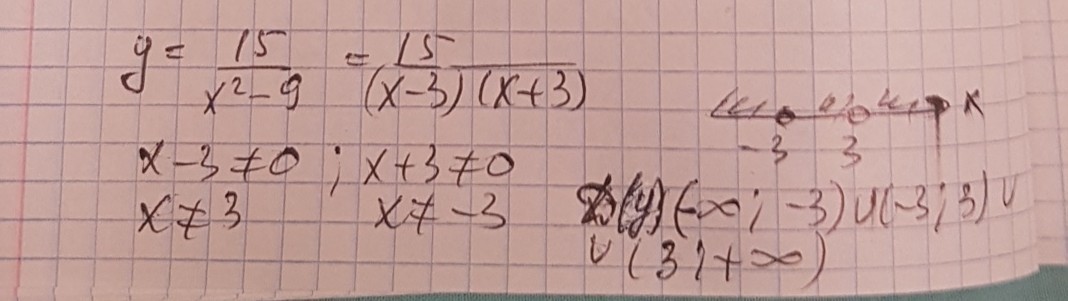 y = 15/(x²-9) = 15/((x-3)(x+3))
x-3≠0 ; x+3≠0
x≠3 x≠-3
-3 3 x
D(y) (-∞; -3) ∪ (-3; 3) ∪
∪ (3; +∞)